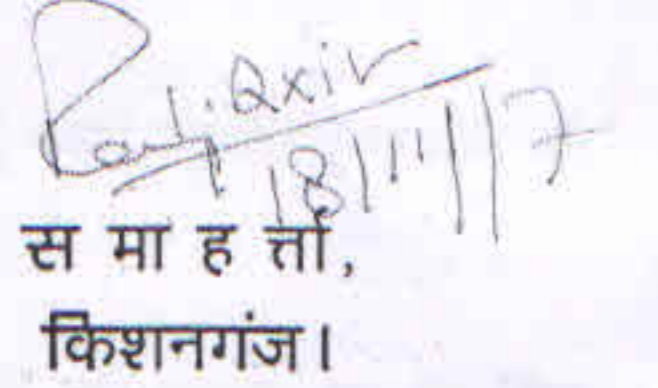 18/11/17
स मा ह र्त्ता,
किशनगंज।